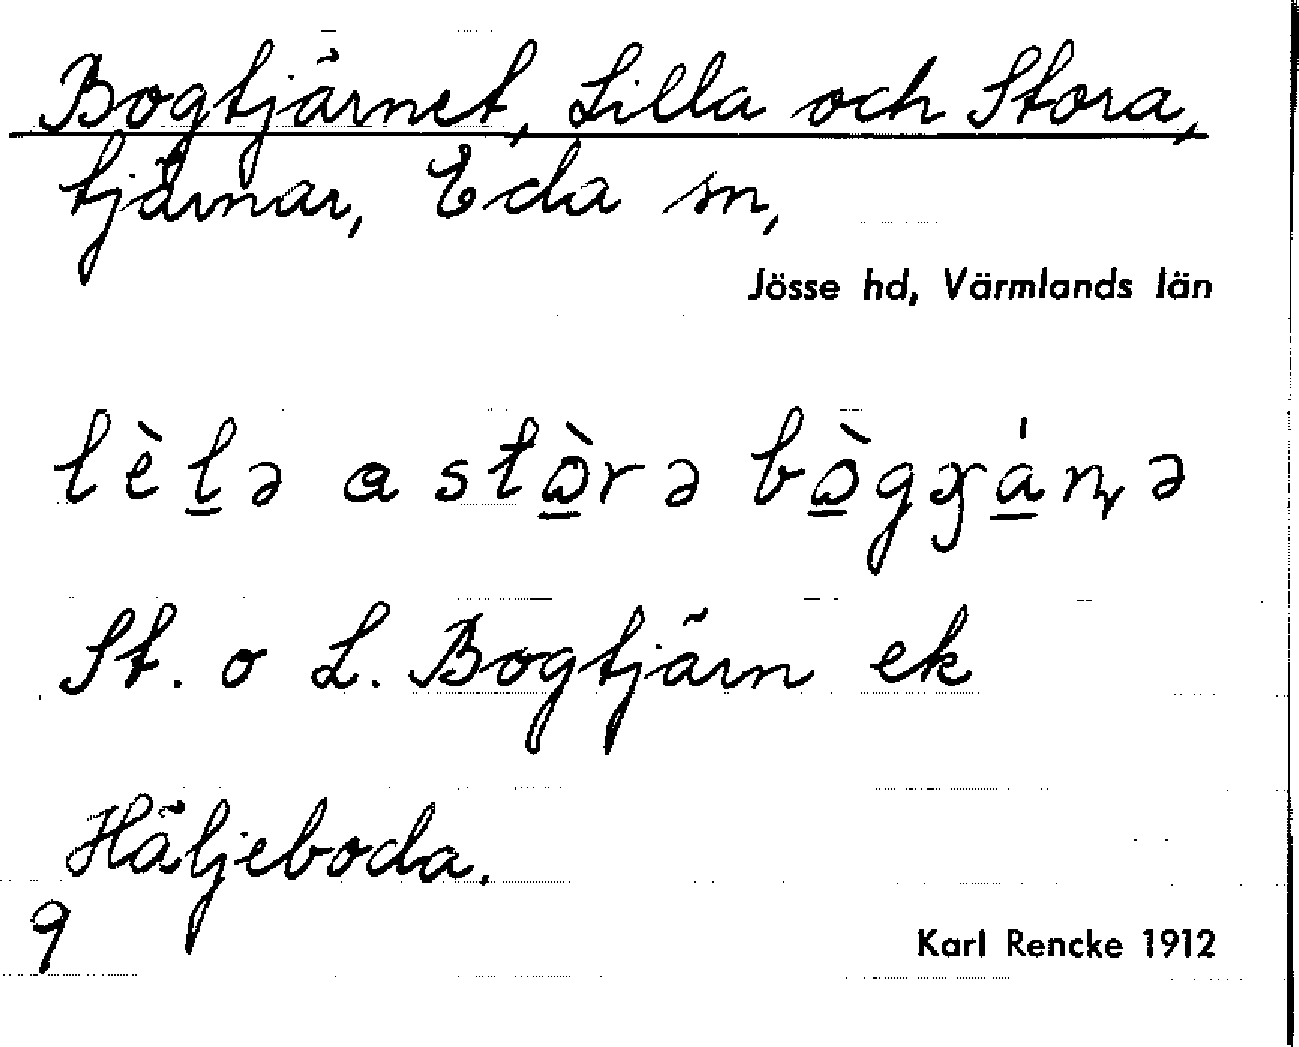 Bogtjärnet, Lilla och Stora,
tjärnar, Eda sn,
Jösse hd, Värmlands län
lèl̲ə a stɷ̲̀rə bɷ̲̀gɣá̲ɳə
St. o L. Bogtjärn ek
Häljeboda.
9
Karl Rencke 1912